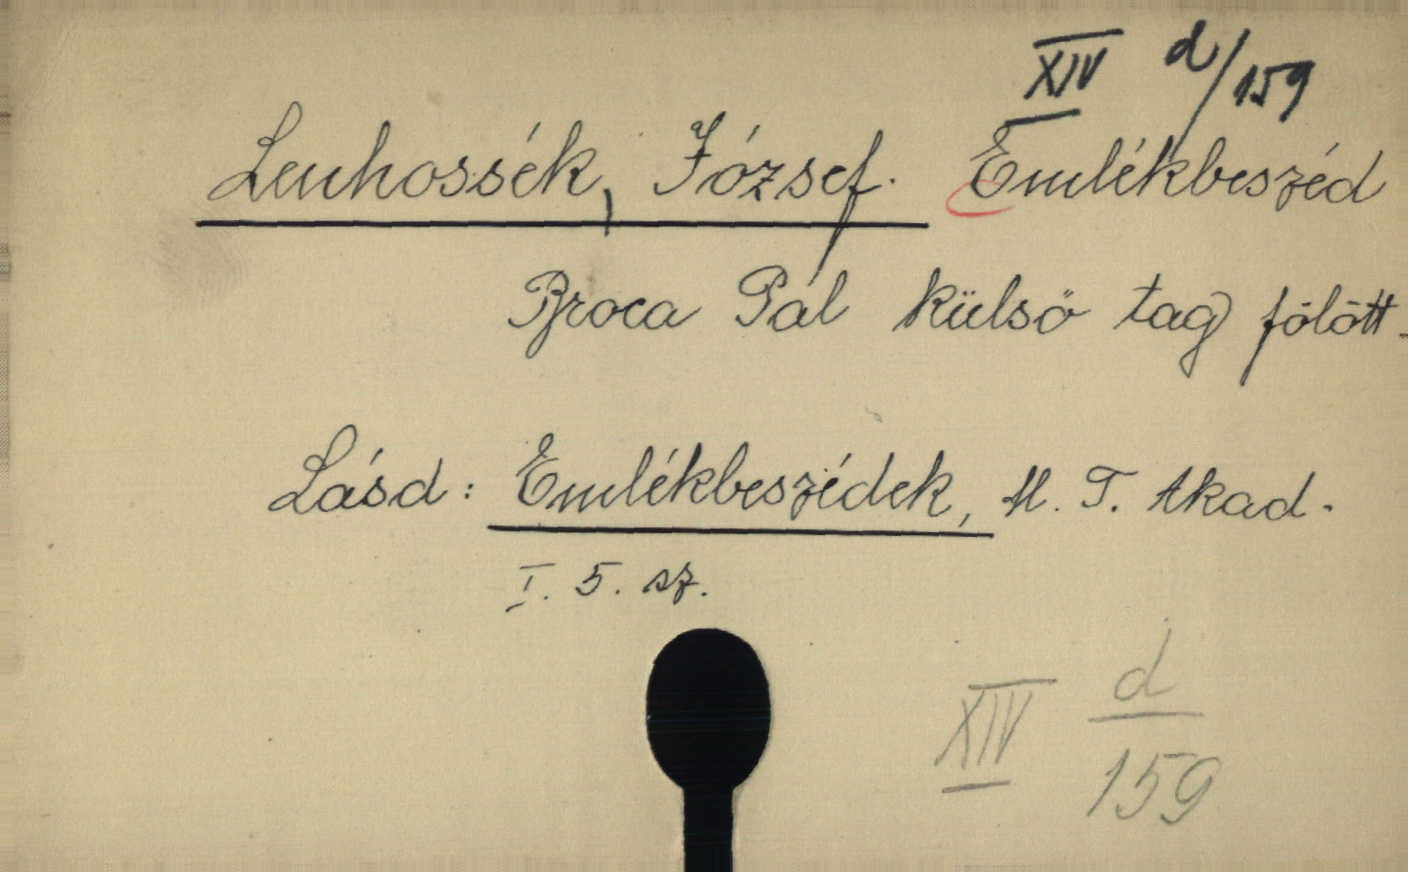 XIV d/159
Lenhossék, József. Emlékbeszéd
Broca Pál külső tag fölött.
Lásd: Emlékbeszédek, M. T. Akad.
I. 5. sz.
XIV d
159